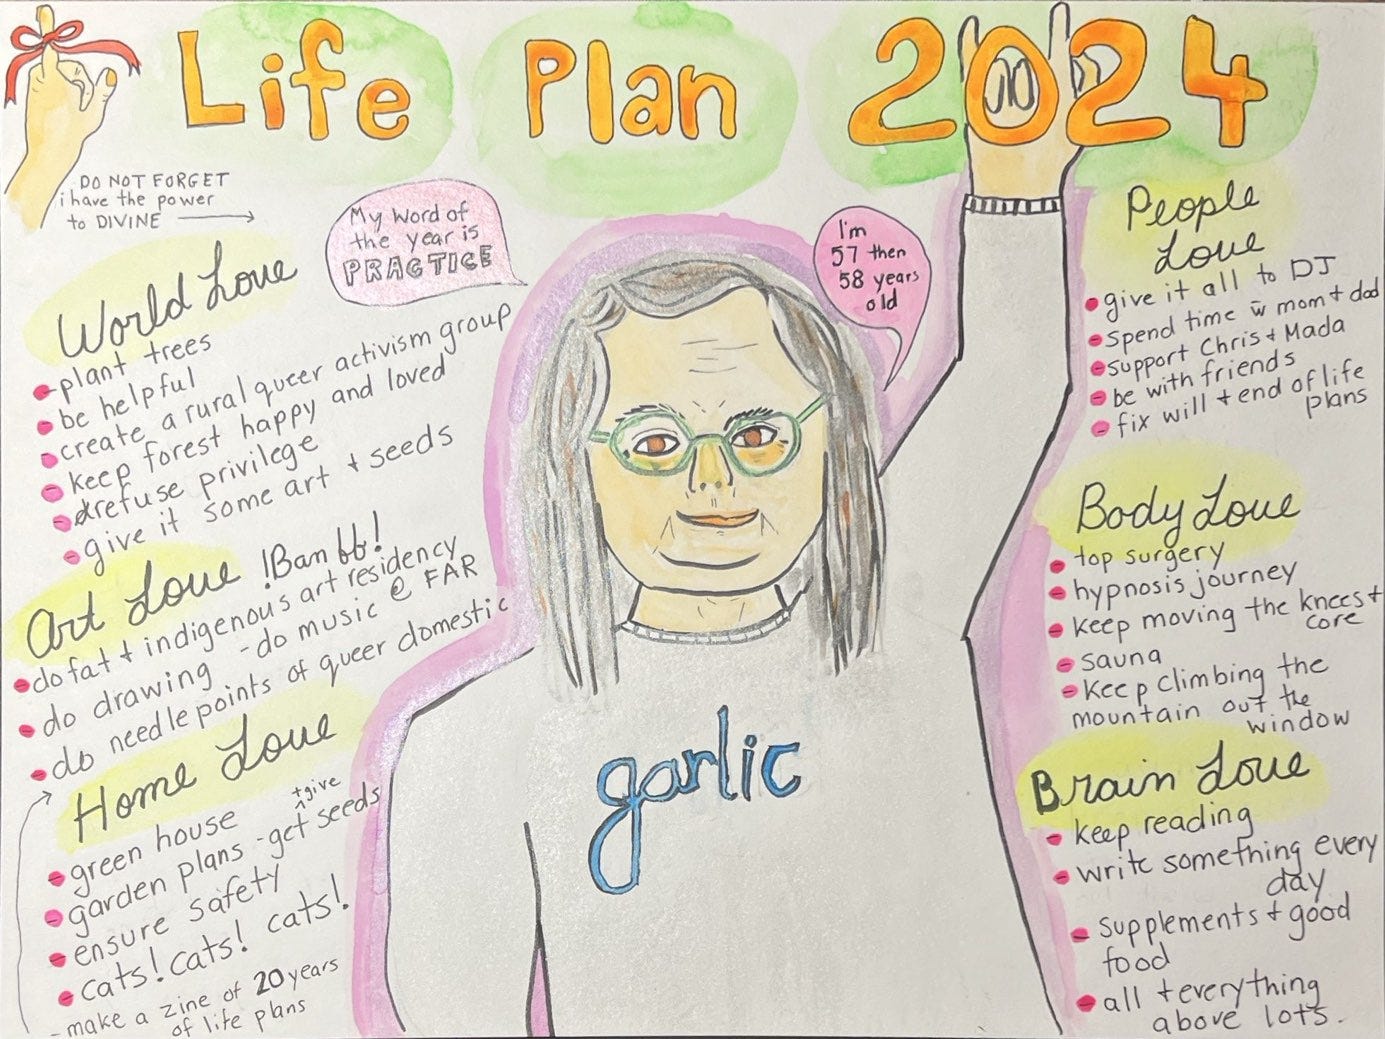 Life Plan 2024
DO NOT FORGET
i have the power
to DIVINE
My word of
the year is
PRACTICE
I'm
57 then
58 years
old
World Love
- plant trees
- be helpful
- create a rural queer activism group
- keep forest happy and loved
- refuse privilege
- give it some art + seeds
Art Love !Banff!
- do fat + indigenous art residency
- do drawing - do music @ FAR
- do needlepoints of queer domestic
Home Love
- green house
+ give
- garden plans - get seeds
- ensure safety
- cats! cats! cats!
- make a zine of 20 years
of life plans
garlic
People
Love
- give it all to DJ
- spend time w mom + dad
- support Chris + Mada
- be with friends
- fix will + end of life
plans
Body Love
- top surgery
- hypnosis journey
- keep moving the knees +
core
- sauna
- Keep climbing the
mountain out the
window
Brain Love
- keep reading
- write something every
day
- supplements + good
food
- all + everything
above lots.